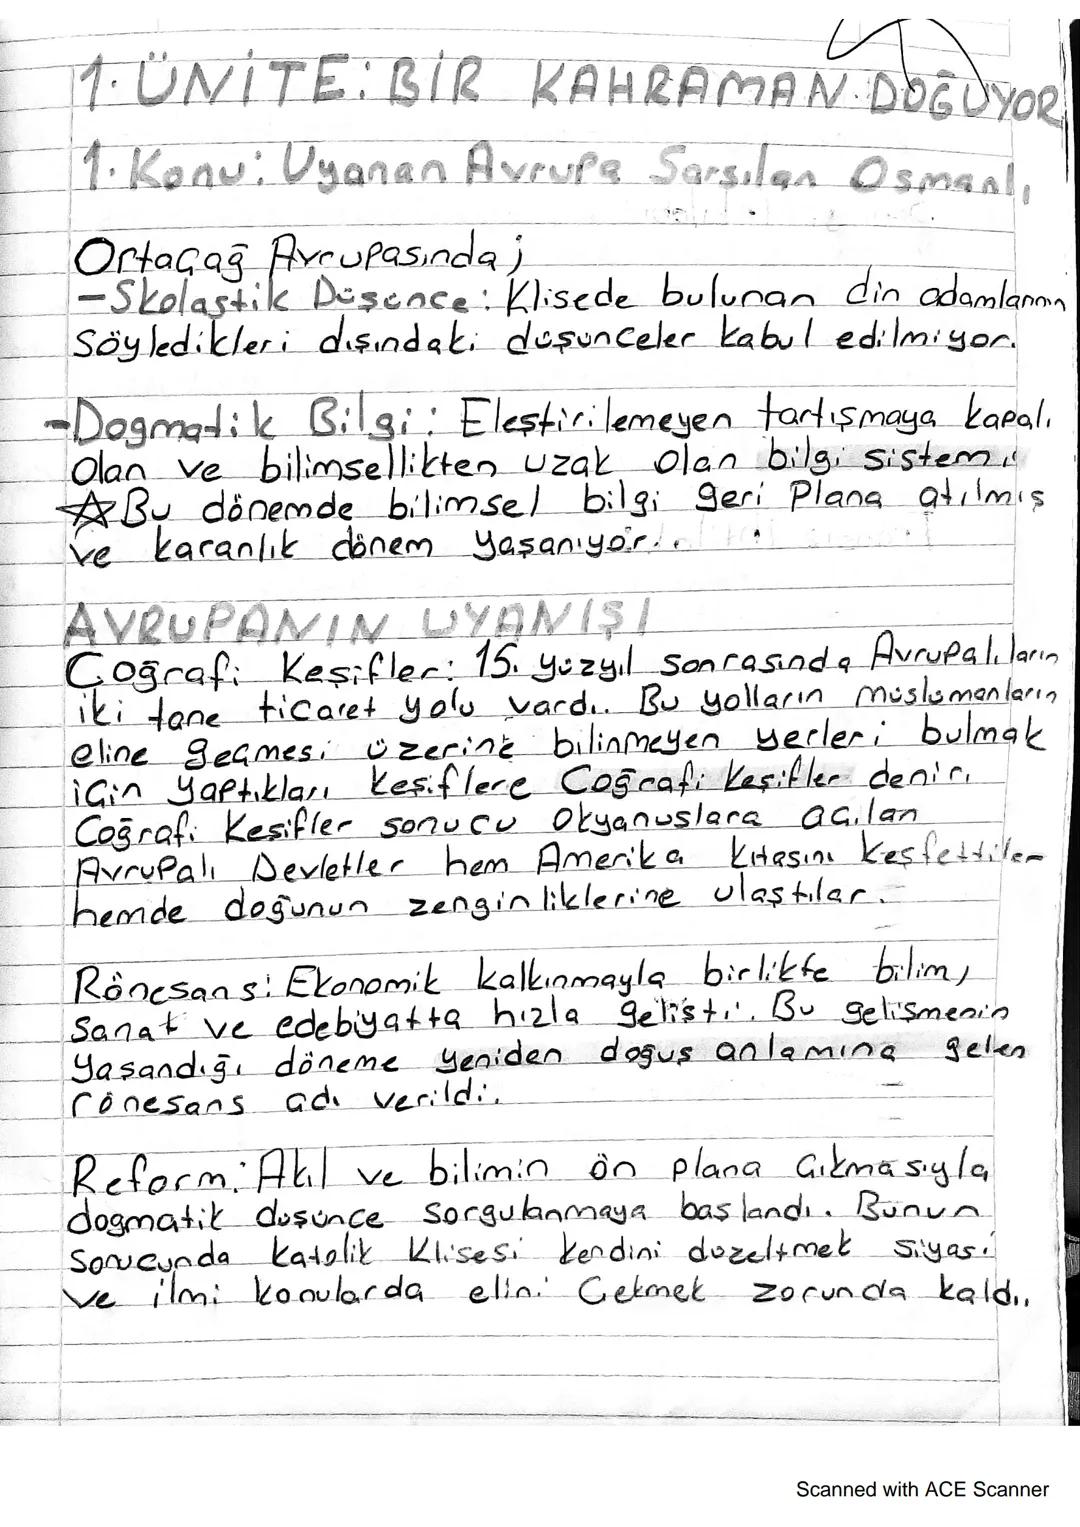 1. ÜNİTE: BİR KAHRAMAN DOĞUYOR
1. Konu: Uyanan Avrupa Sarsılan Osmanlı
Ortaçağ Avrupasında;
-Skolastik Düşünce: Klisede bulunan din adamlarının
Söyledikleri dışındaki düşünceler kabul edilmiyor.
-Dogmatik Bilgi: Eleştirilemeyen tartışmaya kapalı
Olan ve bilimsellikten uzak olan bilgi sistemi
☆Bu dönemde bilimsel bilgi geri Plana atılmış
ve karanlık dönem yaşanıyor.
AVRUPANIN UYANIŞI
Coğrafi Keşifler: 15. yüzyıl sonrasında Avrupalıların
iki tane ticaret yolu vardı. Bu yolların müslümanların
eline geçmesi üzerine bilinmeyen yerleri bulmak
için yaptıkları keşiflere Coğrafi Keşifler denir.
Coğrafi Keşifler sonucu Okyanuslara açılan
Avrupalı Devletler hem Amerika kıtasını keşfettiler
hemde doğunun zenginliklerine ulaştılar.
Rönesans: Ekonomik kalkınmayla birlikte bilim,
Sanat ve edebiyatta hızla gelişti. Bu gelişmenin
Yaşandığı döneme yeniden doğuş anlamına gelen
rönesans adı verildi.
Reform: Akıl ve bilimin ön plana çıkmasıyla
dogmatik düşünce sorgulanmaya başlandı. Bunun
Sonucunda Katolik Klisesi kendini düzeltmek siyasi
ve ilmi konularda elini Çekmek zorunda kaldı.
Scanned with ACE Scanner